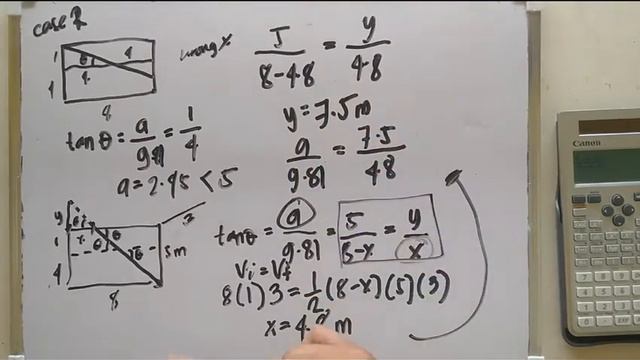 case 2
1
θ
4
4
4
8
wrong x
5/(8-4.8) = y/4.8
y = 7.5m
tanθ = a/9.81 = 1/4
a = 2.45 < 5
a/9.81 = 7.5/4.8
y
1
4
x
θ
θ
θ
5m
8
tanθ = a/9.81 = 5/(8-x) = y/x
Vi = Vf
8(1)3 = 1/2(8-x)(5)(3)
x = 4.8 m
Canon